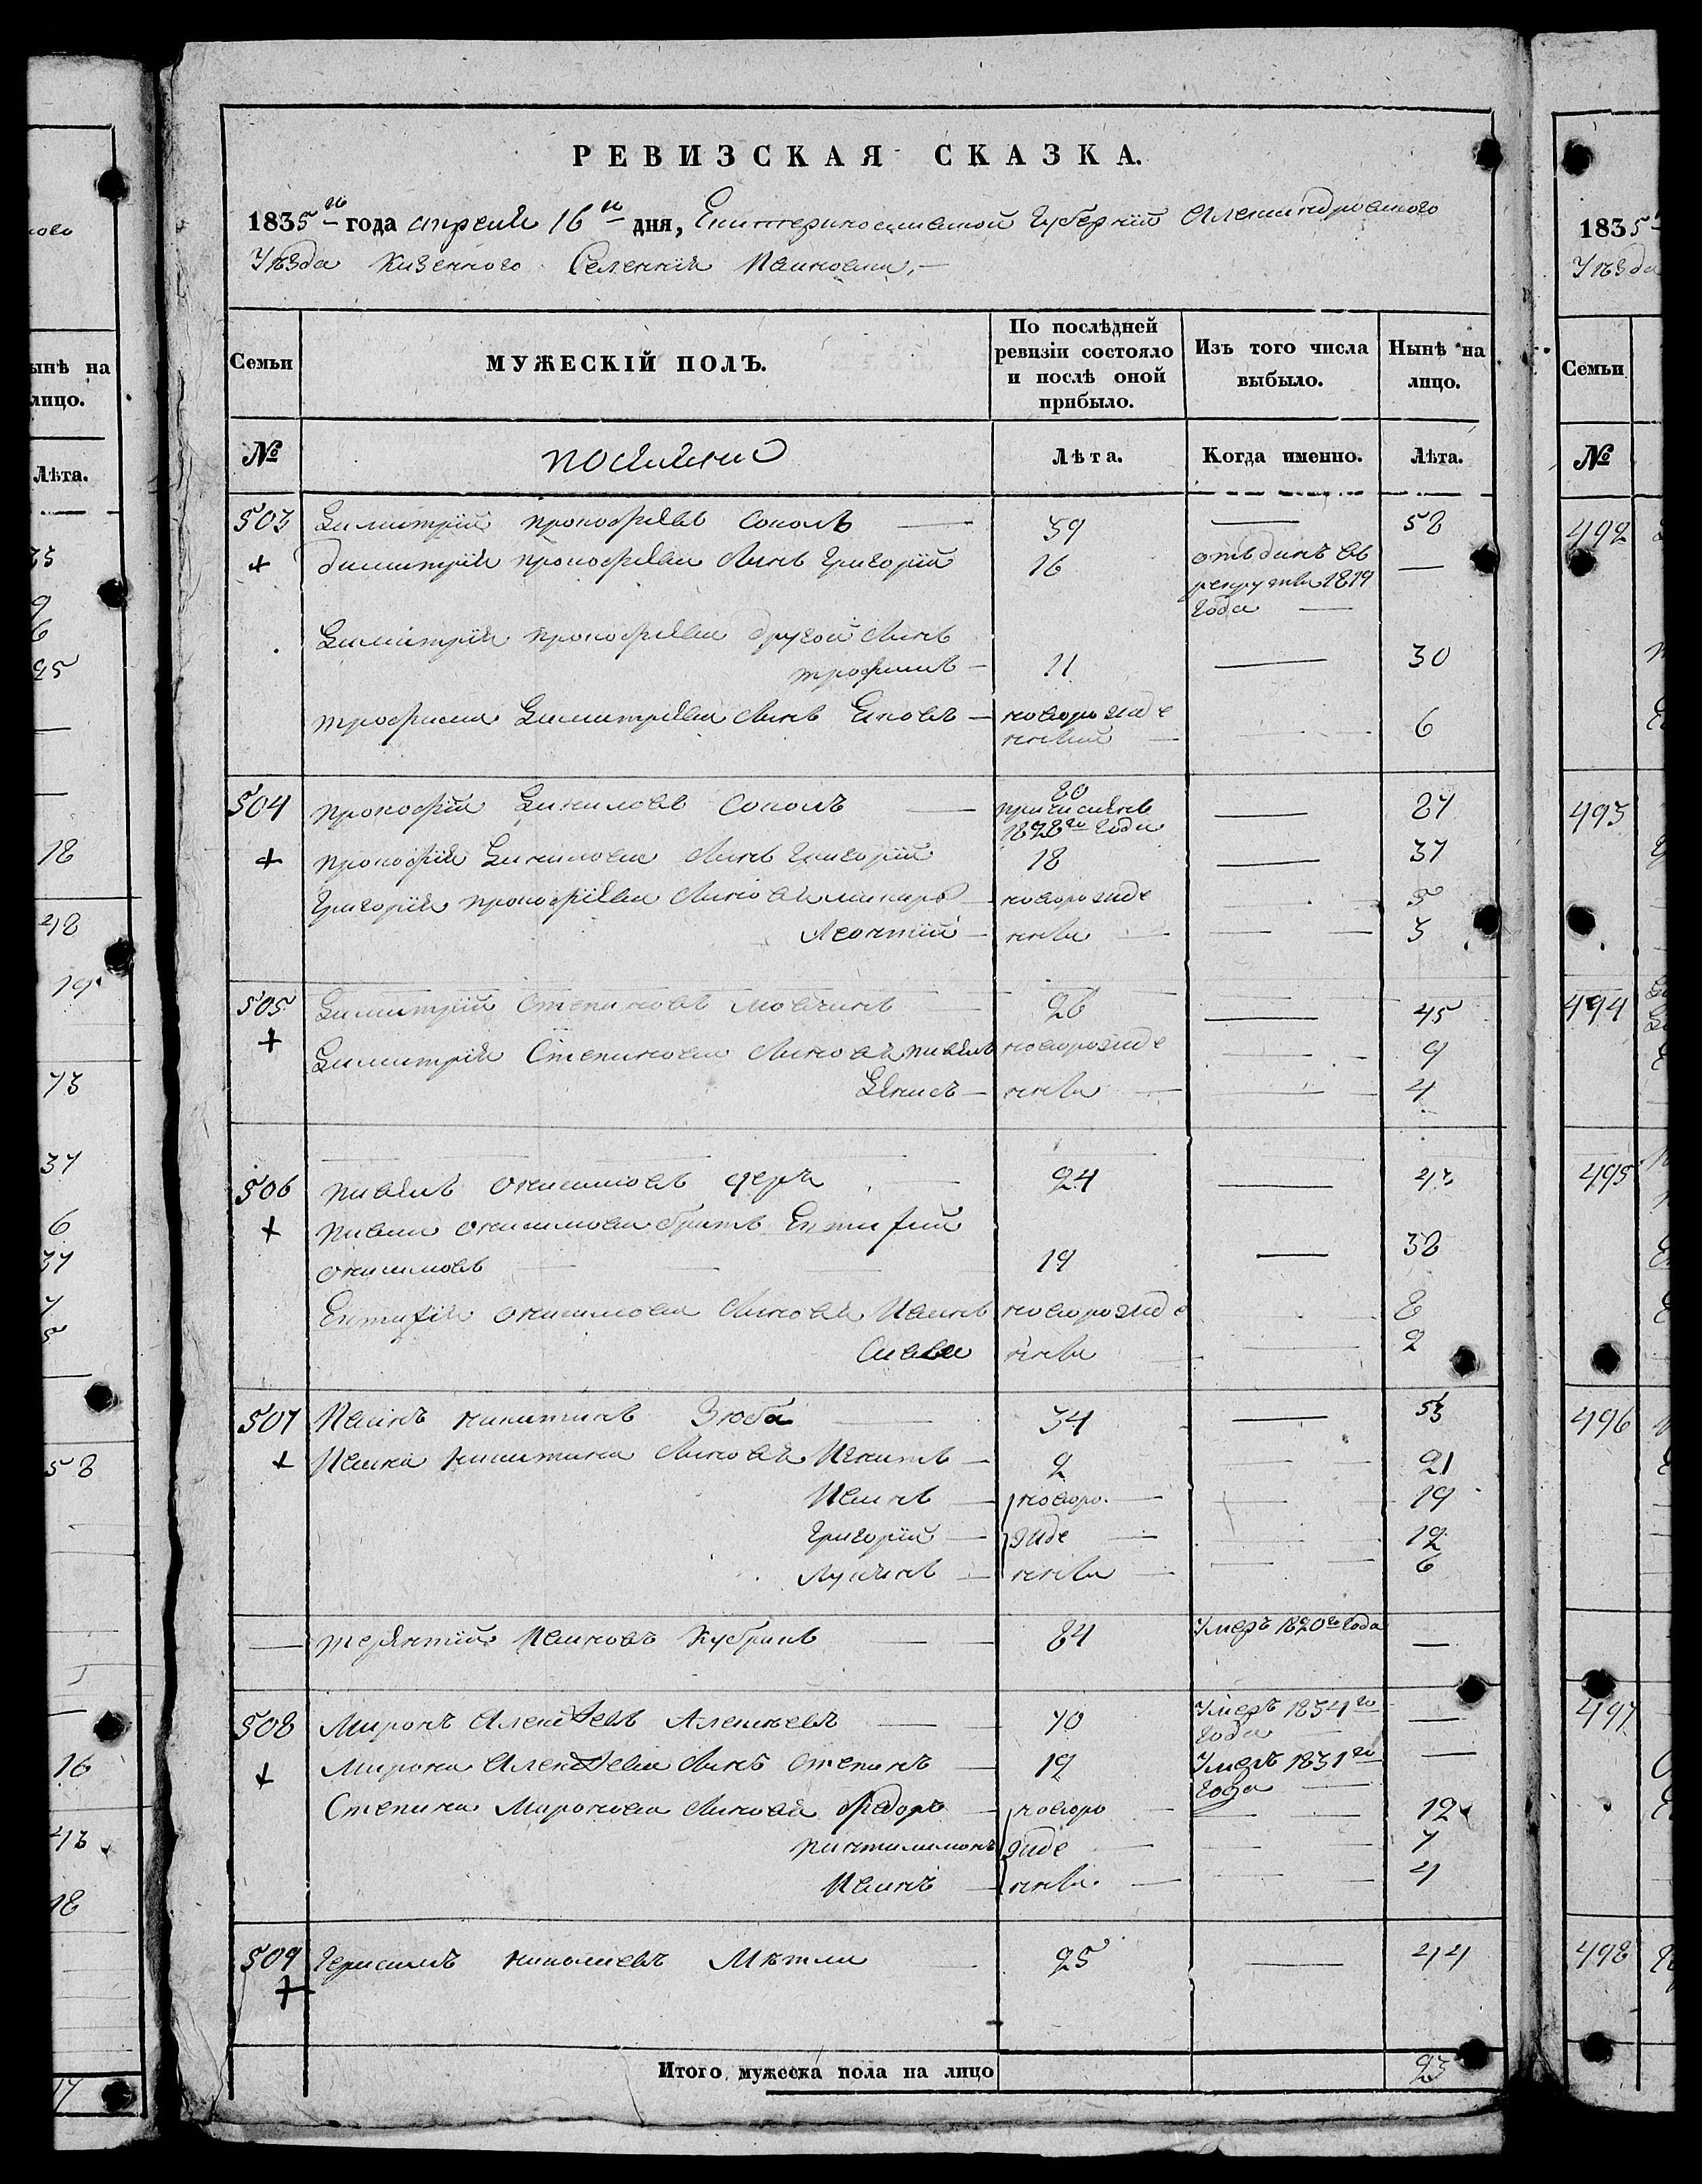 РЕВИЗСКАЯ СКАЗКА.
1835го года апреля 16го дня, Екатеринославской Губернии Александровского
Уѣзда Казенного Селения Ивановки,
Семьи
МУЖЕСКІЙ ПОЛЪ.
По послѣдней ревизіи состояло и послѣ оной прибыло.
Изъ того числа выбыло.
Нынѣ на лицо.
№
Лѣта.
Когда именно.
Лѣта.
503 Димитрій прокофьевъ Соколъ — 39 — 58
+ димитрія прокофьева Сынъ Григорій 16 отъданъ въ —
рекруты 1819
года —
Димитрія прокофьева другой Сынъ
трофимъ — 11 — 30
трофима Димитрьева Сынъ Яковъ — новорожде — 6
нный —
504 прокофій Даниловъ Соколъ — 80 — 87
причисленъ
1828го года
+ прокофія Данилова Сынъ Григорій 18 — 37
Григорія прокофьева Сыновья макаръ новорожде — 5
Леонтій — нны — 3
505 Димитрій Степановъ мовчанъ — 26 — 45
+ Димитрія Степанова Сыновья павелъ новорожде — 9
Денисъ — нны — 4
506 павелъ Онисимовъ 24 — 43
+ павла онисимова братъ Евтифій
онисимовъ — 19 — 38
Евтифія онисимова Сыновья Иванъ новорожде — 8
Сава нны — 2
507 Иванъ никитинъ Зюба — 34 — 53
+ Ивана никитина Сыновья Игнатъ — 2 — 21
Иванъ — новоро — 19
Григорій — жде — 12
Лукьянъ — нны — 6
— терентий Ивановъ Кубракъ — 84 Умеръ 1820го года —
508 Миронъ Алексѣевъ Алексѣевъ — 70 Умеръ 1834го —
года
+ Мирона Алексѣева Сынъ Степанъ — 19 Умеръ 1831го —
года —
Степана Миронова Сыновья Федоръ — новоро — 12
пантилимонъ жде — 7
Иванъ — нны — 4
509 Герасимъ николаевъ Мѣтла — 25 — 44
+
Итого мужеска пола на лицо 23
ынѣ на
лицо.
Лѣта.
9
6
25
18
48
19
73
37
6
37
7
5
58
16
43
18
17
1835
Уѣзда
Семьи
№
492
493
494
495
496
497
498